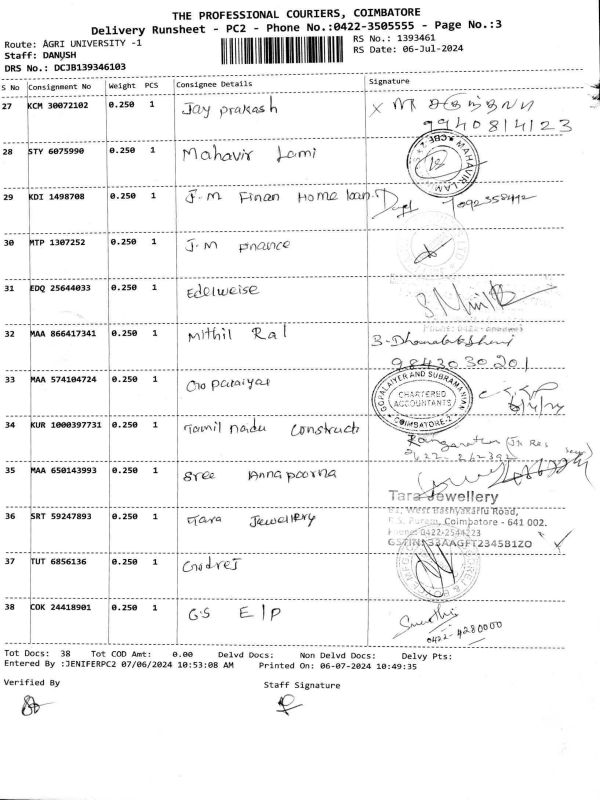 THE PROFESSIONAL COURIERS, COIMBATORE
Delivery Runsheet - PC2 - Phone No.:0422-3505555 - Page No.:3
Route: AGRI UNIVERSITY -1
RS No.: 1393461
Staff: DANUSH
RS Date: 06-Jul-2024
DRS No.: DCJB139346103
S No Consignment No Weight PCS Consignee Details Signature
27 KCM 30072102 0.250 1 Jay prakash
9940814123
28 STY 6075990 0.250 1 Mahavir Lami
MAHAVIR LAM
CBE
29 KDI 1498708 0.250 1 J.M Finan Home loan
30 MTP 1307252 0.250 1 J.M Finance
31 EDQ 25644033 0.250 1 Edelweise
32 MAA 866417341 0.250 1 Mithil Raj
S-Dhanalakshmi
9843030201
33 MAA 574104724 0.250 1
GOPALAIYER AND SUBRAMANIAN
CHARTERED
ACCOUNTANTS
COIMBATORE-2
34 KUR 1000397731 0.250 1 Tamil nadu Construct
35 MAA 650143993 0.250 1 Sree Annapoorna
36 SRT 59247893 0.250 1 Tara Jewellery
Tara Jewellery
West Bashyakarlu Road,
R.S. Puram, Coimbatore - 641 002.
Phone: 0422-2544223
GSTIN: 33AAGFT2345B1ZO
37 TUT 6856136 0.250 1 Godrej
38 COK 24418901 0.250 1 G.S E/P
0422-4280000
Tot Docs: 38 Tot COD Amt: 0.00 Delvd Docs: Non Delvd Docs: Delvy Pts:
Entered By :JENIFERPC2 07/06/2024 10:53:08 AM Printed On: 06-07-2024 10:49:35
Verified By Staff Signature